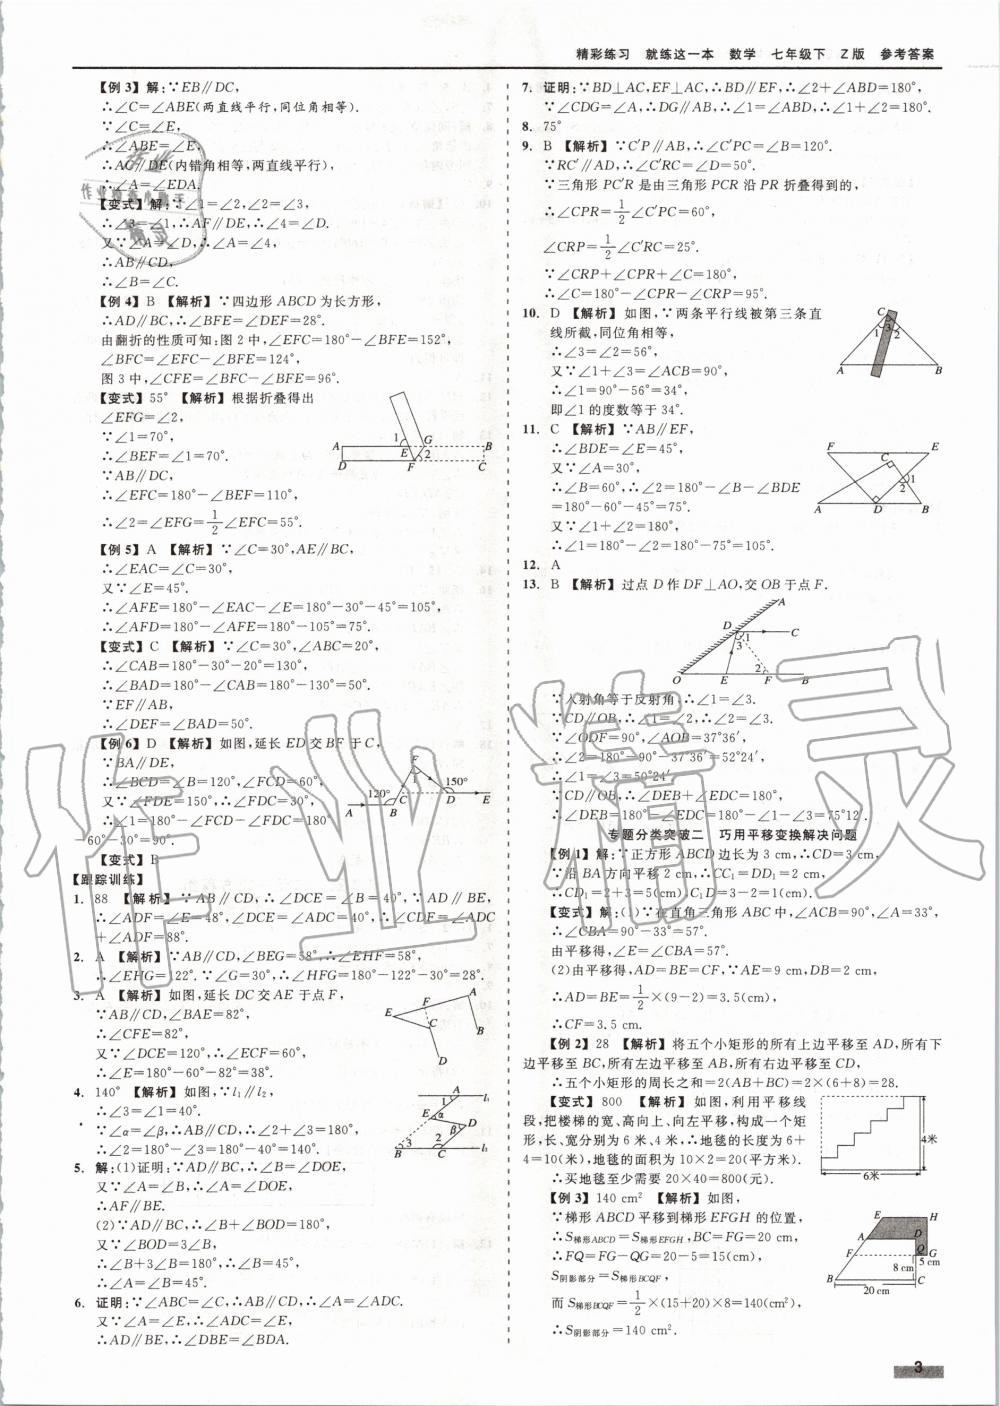 精彩练习 就练这一本 数学 七年级下 Z版 参考答案
【例3】解:∵EB∥DC,
∴∠C=∠ABE(两直线平行,同位角相等).
∵∠C=∠E,
∴∠ABE=∠E,
∴AC∥DE(内错角相等,两直线平行),
∴∠A=∠EDA.
【变式】解:∵∠1=∠2,∠2=∠3,
∴∠3=∠1,∴AF∥DE,∴∠4=∠D.
又∵∠A=∠D,∴∠A=∠4,
∴AB∥CD,
∴∠B=∠C.
【例4】B 【解析】∵四边形ABCD为长方形,
∴AD∥BC,∴∠BFE=∠DEF=28°.
由翻折的性质可知:图2中,∠EFC=180°-∠BFE=152°,
∠BFC=∠EFC-∠BFE=124°,
图3中,∠CFE=∠BFC-∠BFE=96°.
【变式】55° 【解析】根据折叠得出
∠EFG=∠2,
∵∠1=70°,
∴∠BEF=∠1=70°.
∵AB∥DC,
∴∠EFC=180°-∠BEF=110°,
∴∠2=∠EFG=1/2∠EFC=55°.
【例5】A 【解析】∵∠C=30°,AE∥BC,
∴∠EAC=∠C=30°,
又∵∠E=45°.
∴∠AFE=180°-∠EAC-∠E=180°-30°-45°=105°,
∴∠AFD=180°-∠AFE=180°-105°=75°.
【变式】C 【解析】∵∠C=30°,∠ABC=20°,
∴∠CAB=180°-30°-20°=130°,
∴∠BAD=180°-∠CAB=180°-130°=50°.
∵EF∥AB,
∴∠DEF=∠BAD=50°.
【例6】D 【解析】如图,延长ED交BF于C,
∵BA∥DE,
∴∠BCD=∠B=120°,∠FCD=60°.
又∵∠FDE=150°,∴∠FDC=30°,
∴∠1=180°-∠FCD-∠FDC=180°
-60°-30°=90°.
【变式】B
【跟踪训练】
1. 88 【解析】∵AB∥CD,∴∠DCE=∠B=40°.∵AD∥BE,
∴∠ADF=∠E=48°,∠DCE=∠ADC=40°,∴∠CDF=∠ADC
+∠ADF=88°.
2. A 【解析】∵AB∥CD,∠BEG=58°,∴∠EHF=58°,
∴∠EHG=122°.∵∠G=30°,∴∠HFG=180°-122°-30°=28°.
3. A 【解析】如图,延长DC交AE于点F,
∵AB∥CD,∠BAE=82°,
∴∠CFE=82°,
又∵∠DCE=120°,∴∠ECF=60°,
∴∠E=180°-60°-82°=38°.
4. 140° 【解析】如图,∵l₁∥l₂,
∴∠3=∠1=40°.
∵∠α=∠β,∴AB∥CD,∴∠2+∠3=180°,
∴∠2=180°-∠3=180°-40°=140°.
5. 解:(1)证明:∵AD∥BC,∴∠B=∠DOE,
又∵∠A=∠B,∴∠A=∠DOE,
∴AF∥BE.
(2)∵AD∥BC,∴∠B+∠BOD=180°,
又∵∠BOD=3∠B,
∴∠B+3∠B=180°,∴∠B=45°,
∴∠A=∠B=45°.
6. 证明:∵∠ABC=∠C,∴AB∥CD,∴∠A=∠ADC.
又∵∠A=∠E,∴∠ADC=∠E,
∴AD∥BE,∴∠DBE=∠BDA.
7. 证明:∵BD⊥AC,EF⊥AC,∴BD∥EF,∴∠2+∠ABD=180°.
∵∠CDG=∠A,∴DG∥AB,∴∠1=∠ABD,∴∠1+∠2=180°.
8. 75°
9. B 【解析】∵C′P∥AB,∴∠C′PC=∠B=120°.
∵RC′∥AD,∴∠C′RC=∠D=50°.
∵三角形PC′R是由三角形PCR沿PR折叠得到的,
∴∠CPR=1/2∠C′PC=60°,
∠CRP=1/2∠C′RC=25°.
∵∠CRP+∠CPR+∠C=180°,
∴∠C=180°-∠CPR-∠CRP=95°.
10. D 【解析】如图,∵两条平行线被第三条直
线所截,同位角相等,
∴∠3=∠2=56°,
又∵∠1+∠3=∠ACB=90°,
∴∠1=90°-56°=34°,
即∠1的度数等于34°.
11. C 【解析】∵AB∥EF,
∴∠BDE=∠E=45°,
又∵∠A=30°,
∴∠B=60°,∴∠2=180°-∠B-∠BDE
=180°-60°-45°=75°.
又∵∠1+∠2=180°,
∴∠1=180°-∠2=180°-75°=105°.
12. A
13. B 【解析】过点D作DF⊥AO,交OB于点F.
∵入射角等于反射角,∴∠1=∠3.
∵CD∥OB,∴∠1=∠2,∴∠2=∠3.
∵∠ODF=90°,∠AOB=37°36′,
∴∠2=180°-90°-37°36′=52°24′,
∴∠1=∠3=50°24′,
∵CD∥OB,∴∠DEB+∠EDC=180°,
∴∠DEB=180°-∠EDC=180°-2∠2=∠3=75°12′.
专题分类突破二 巧用平移变换解决问题
【例1】解:∵正方形ABCD边长为3 cm,∴CD=3 cm,
∵沿BA方向平移2 cm,∴CC₁=DD₁=2 cm,
∴CD₁=2+3=5(cm),C₁D=3-2=1(cm).
【变式】解:(1)∵在直角三角形ABC中,∠ACB=90°,∠A=33°,
∴∠CBA=90°-33°=57°.
由平移得,∠E=∠CBA=57°.
(2)由平移得,AD=BE=CF,∵AE=9 cm,DB=2 cm,
∴AD=BE=1/2×(9-2)=3.5(cm),
∴CF=3.5 cm.
【例2】28 【解析】将五个小矩形的所有上边平移至AD,所有下
边平移至BC,所有左边平移至AB,所有右边平移至CD,
∴五个小矩形的周长之和=2(AB+BC)=2×(6+8)=28.
【变式】800 【解析】如图,利用平移线
段,把楼梯的宽、高向上、向左平移,构成一个矩
形,长、宽分别为6米、4米,∴地毯的长度为6+
4=10(米),地毯的面积为10×2=20(平方米).
∴买地毯至少需要20×40=800(元).
【例3】140 cm² 【解析】如图,
∵梯形ABCD平移到梯形EFGH的位置,
∴S梯形ABCD=S梯形EFGH,BC=FG=20 cm,
∴FQ=FG-QG=20-5=15(cm),
S阴影部分=S梯形BCQF,
而S梯形BCQF=1/2×(15+20)×8=140(cm²),
∴S阴影部分=140 cm².
3